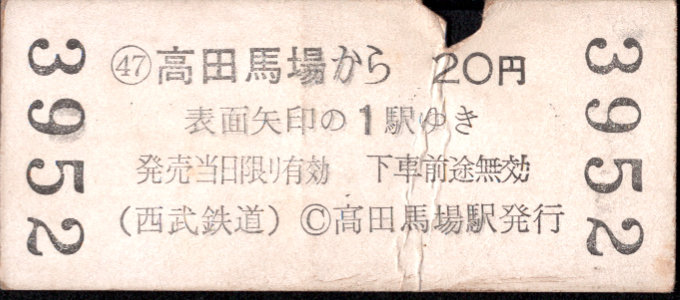 3952
㊼高田馬場から 20円
表面矢印の1駅ゆき
発売当日限り有効 下車前途無効
(西武鉄道) Ⓒ高田馬場駅発行
3952